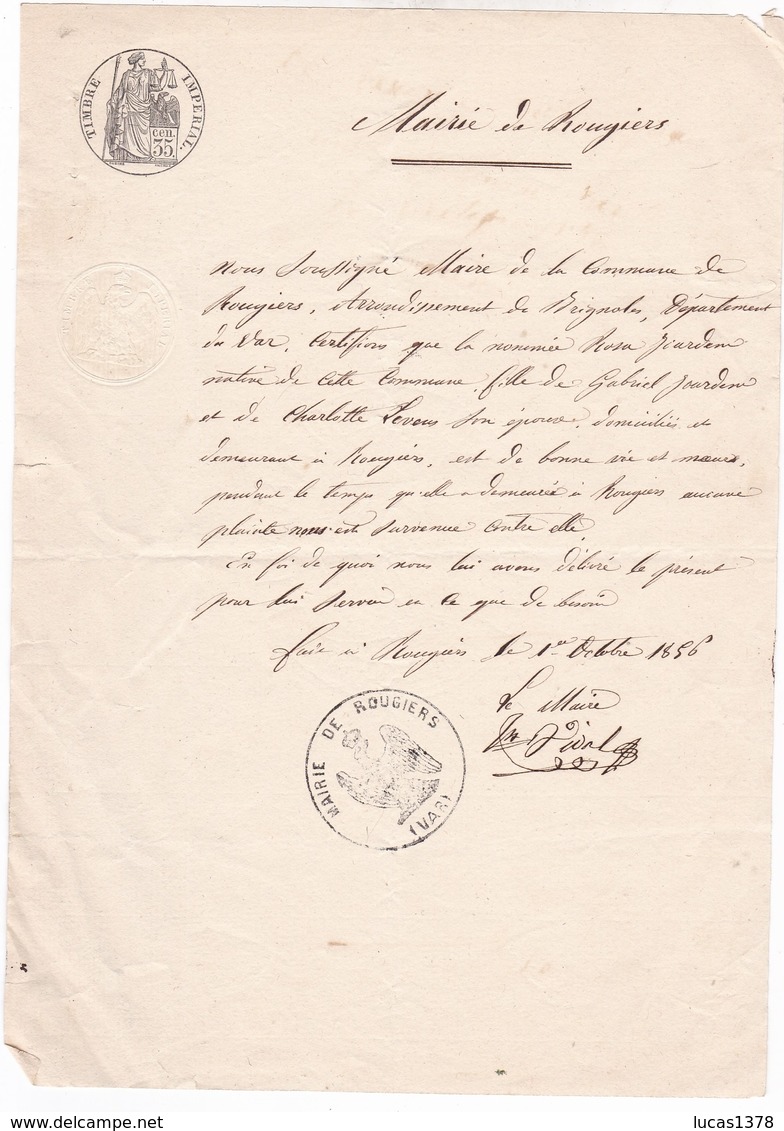 TIMBRE IMPERIAL.
cen.
35
Mairie de Rougiers
Nous Soussigné Maire de la Commune de
Rougiers, Arrondissement de Brignoles, Département
du Var, Certifions que la nommée Rosa Jourdan
native de cette Commune, fille de Gabriel Jourdan
et de Charlotte Levens son épouse, domiciliés et
demeurant à Rougiers, est de bonne vie et mœurs,
pendant le temps qu'elle a demeurée à Rougiers aucune
plainte nous est survenue contre elle.
En foi de quoi nous lui avons délivré le présent
pour lui servir en ce que de besoin
Fait à Rougiers le 1er Octobre 1856
Le Maire
MAIRIE DE ROUGIERS
(VAR)
lucas1378